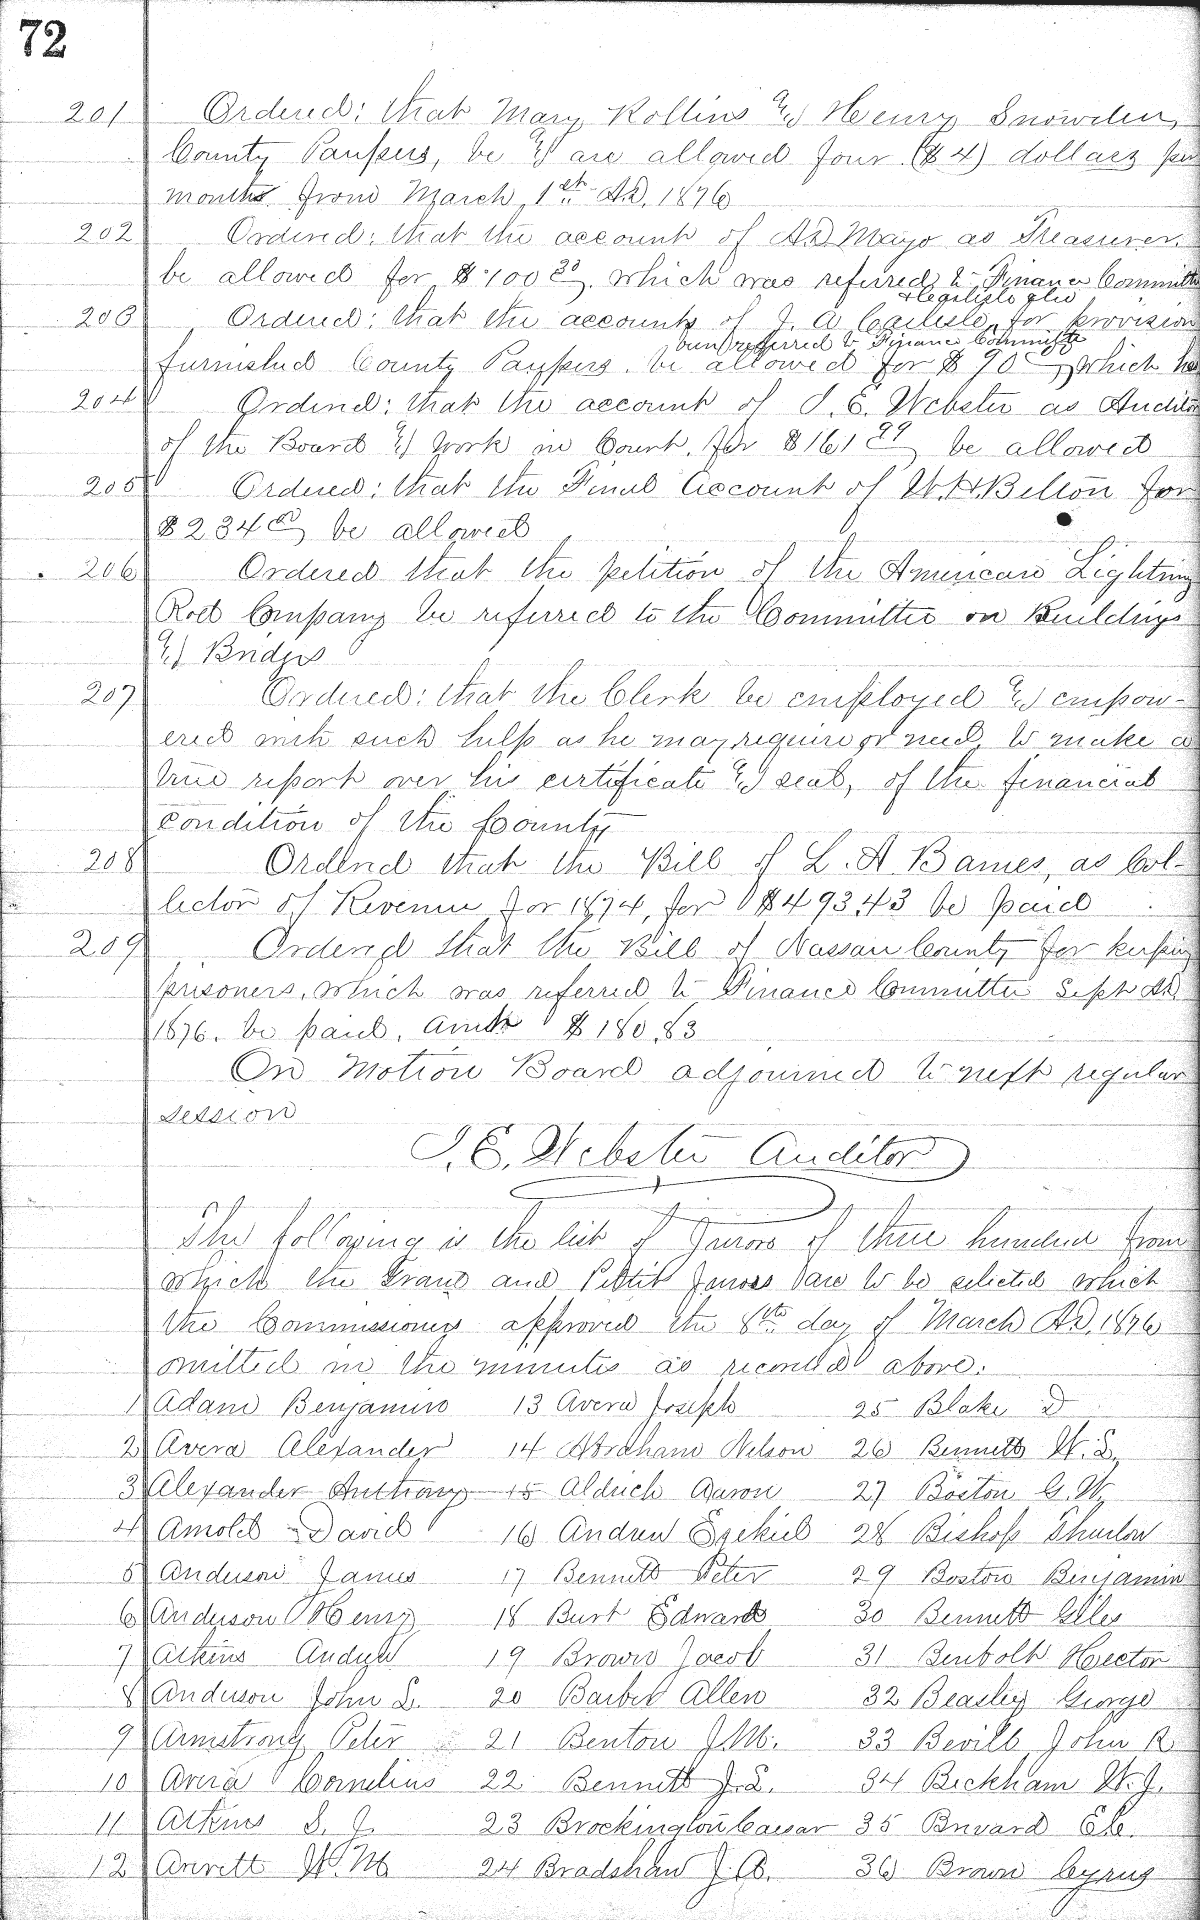 72
201 Ordered: that Mary Rollins & Henry Snowden,
County Paupers, be & are allowed four ($4) dollars per
months from March 1st A.D. 1876
202 Ordered: that the account of A D Mayo as Treasurer,
be allowed for $ 100 30 which was referred to Finance Committe
203 Ordered: that the accounts of J. A Carlisle, for provision
furnished County Paupers, be allowed for $ 90 which has
been referred to Finance Committe
204 Orderd: that the account of I. E. Webster as Auditor
of the Board & work in Court, for $161 99 be allowed
205 Ordered: that the Final Account of W. H. Belton for
$234 be allowed
206 Ordered that the petition of the American Lightning
Rod Company be referred to the Committee on Buildings
& Bridges
207 Ordered: that the Clerk be employed & empow-
ered with such help as he may require or need, to make a
true report over his certificate & seal, of the financial
condition of the County
208 Orderd that the Bill of L. A Barnes, as Col-
lector of Revenue for 1874, for $493,43 be paid
209 Ordered that the Bill of Nassau County for keeping
prisoners, which was referred to Finance Committee Sept AD
1876. be paid, Amt $180,83
On Motion Board adjourned to next regular
session
I. E. Webster Auditor
The following is the list of Jurors of three hundred from
which the Grand and Pettit Jurors are to be selected which
the Commissioners approved the 8th day of March A.D. 1876
omitted in the minutes as recorded above:
1 Adam Benjamin 13 Avera Joseph 25 Blake D
2 Avera Alexander 14 Abraham Nelson 26 Bennett W. S.
3 Alexander Anthony 15 Aldrich Aaron 27 Boston G. W.
4 Arnold David 16 Andrew Ezekiel 28 Bishop Thurlow
5 Anderson James 17 Bennett Peter 29 Boston Benjamin
6 Anderson Henry 18 Burt Edward 30 Bennett Giles
7 Atkins Andrew 19 Brown Jacob 31 Benbolt Hector
8 Anderson John L. 20 Barber Allen 32 Beasley George
9 Armstrong Peter 21 Benton J. M. 33 Bevill John R
10 Avera Cornelius 22 Bennett J. L. 34 Beckham W. J.
11 Atkins S. J. 23 Brockington Caesar 35 Brevard E.
12 Averett W. M 24 Bradshaw J. A. 36 Brown Cyrus